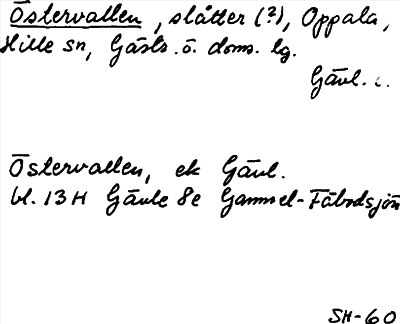 Östervallen, slåtter (?), Oppala,
Hille sn, Gästr. ö. doms. lg.
Gävl. l.
Östervallen, ek Gävl.
bl. 13 H Gävle 8e Gammel-Fäbodsjön
SH-60